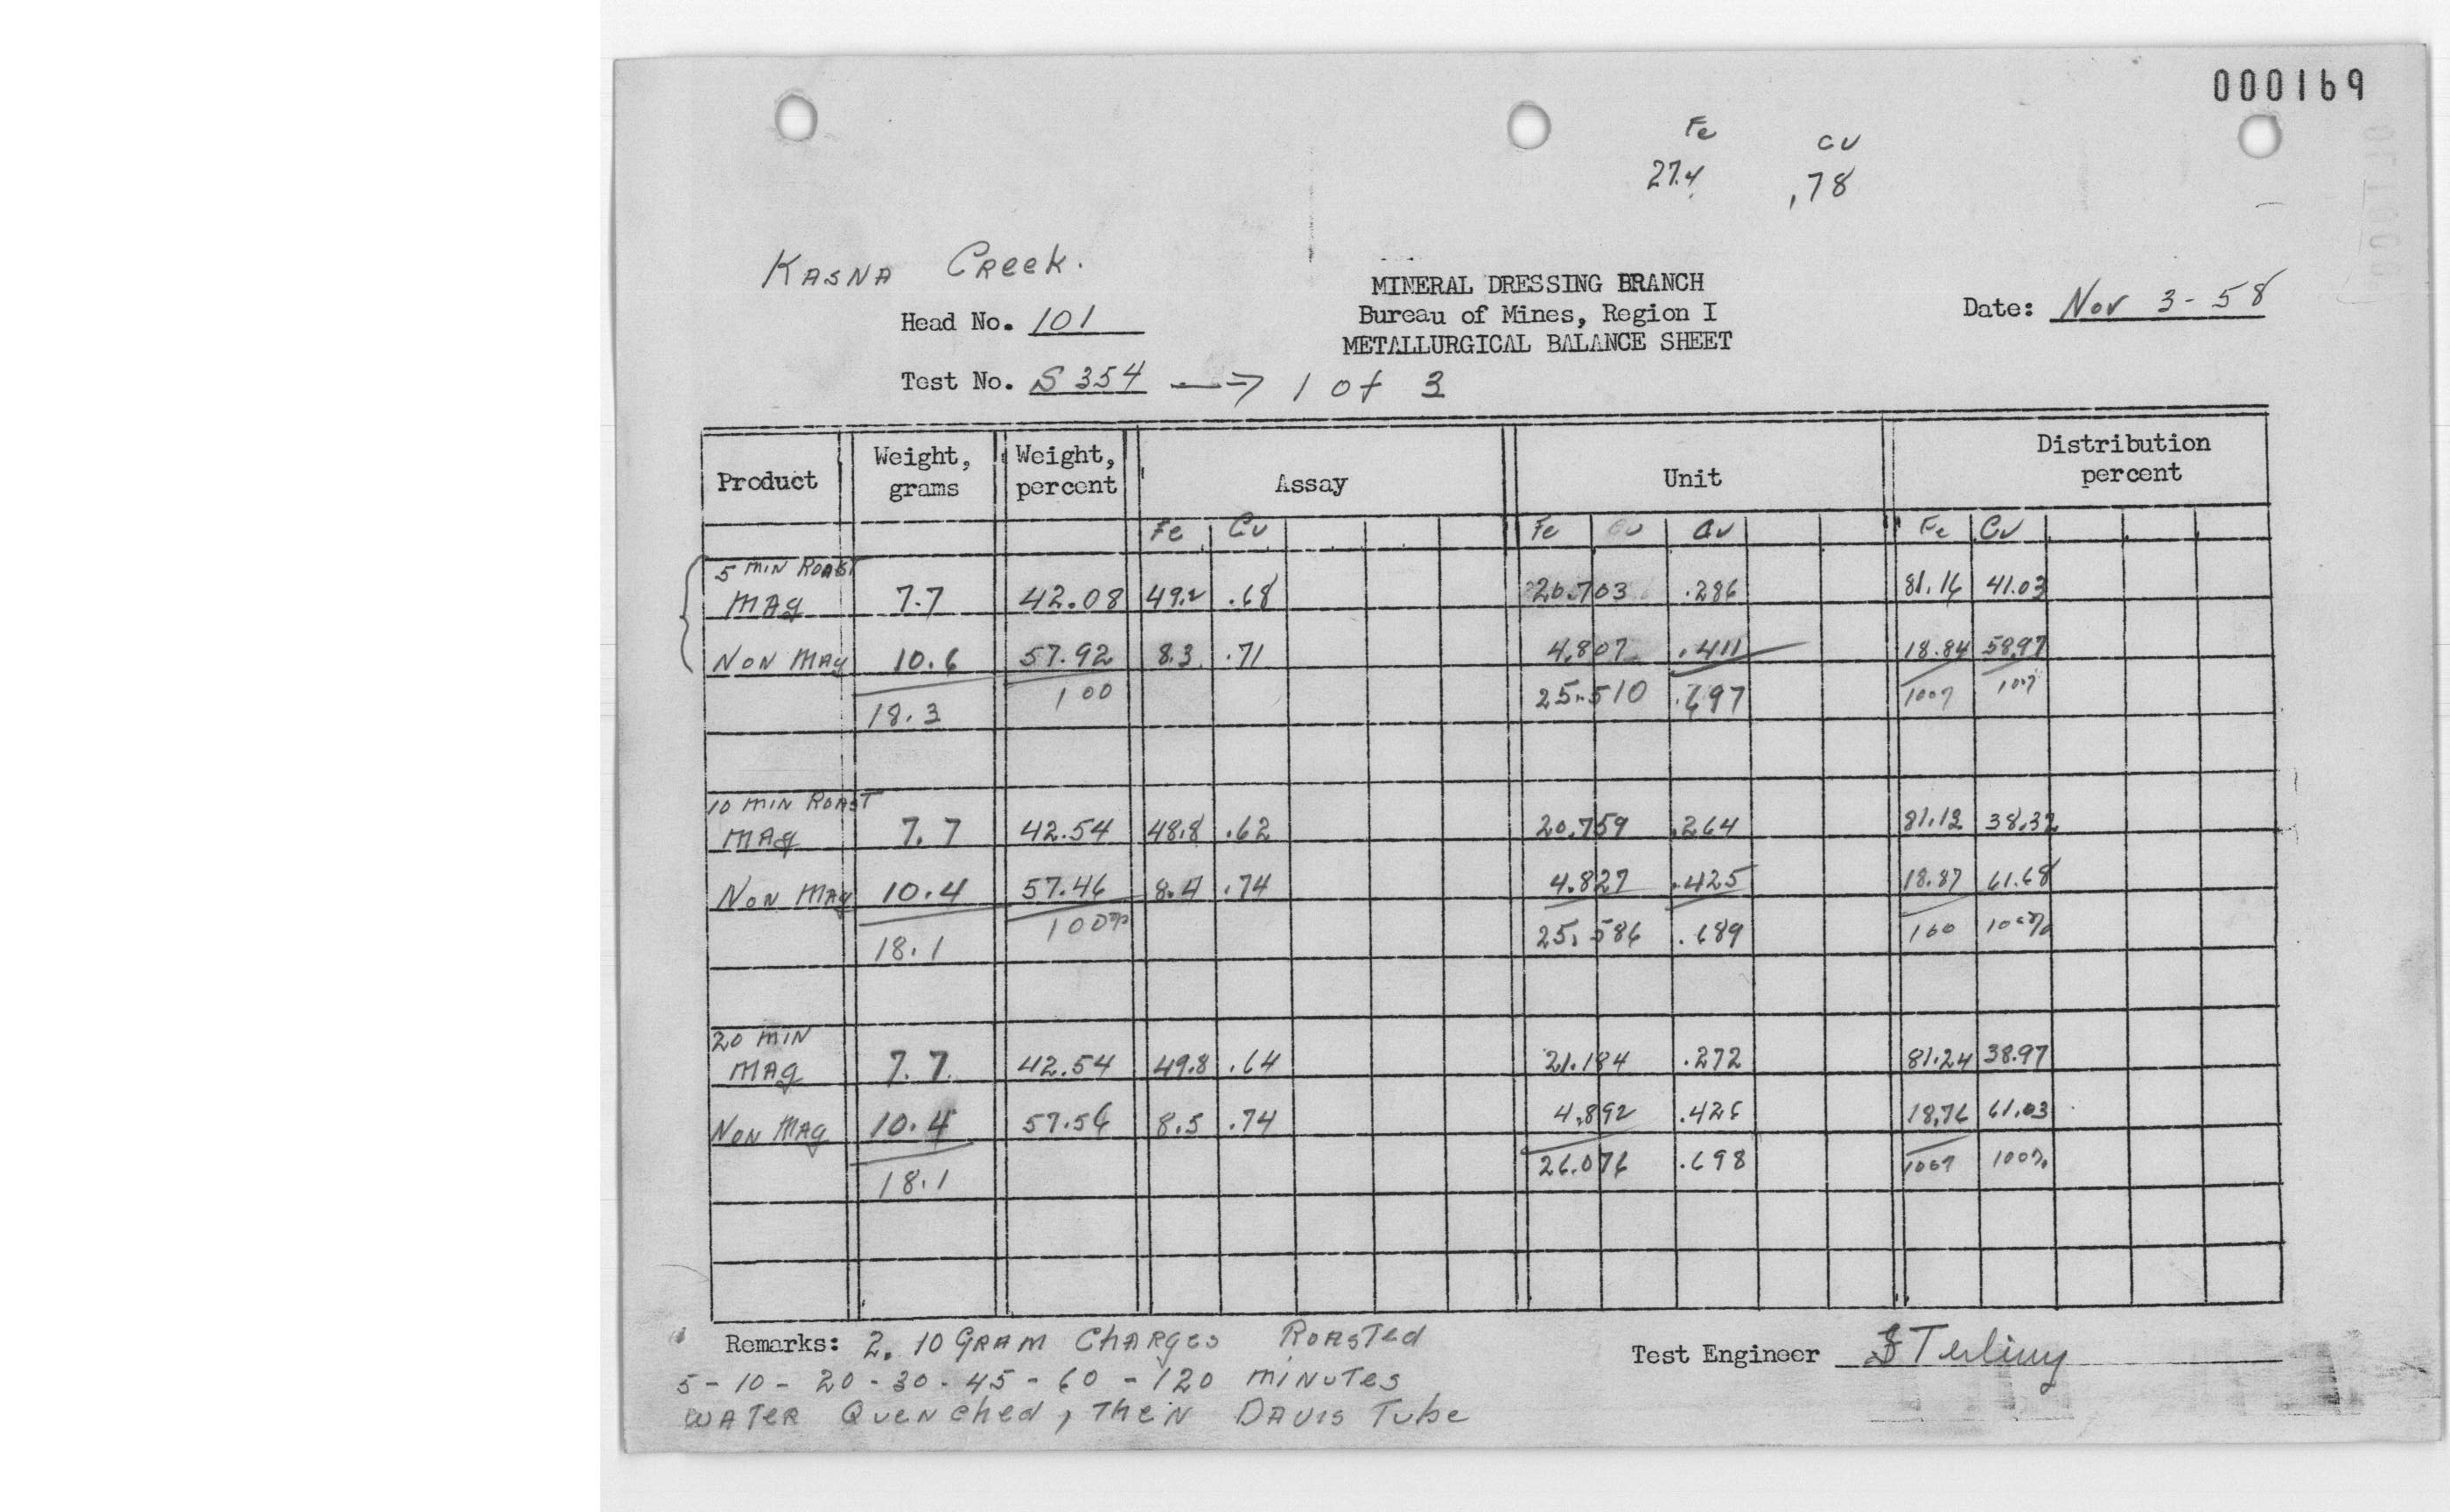 000169
Fe Cu
27.4 .78
Kasna Creek.
MINERAL DRESSING BRANCH
Head No. 101 Bureau of Mines, Region I Date: Nov 3-58
METALLURGICAL BALANCE SHEET
Test No. S 354 → 1 of 3
Product Weight, grams Weight, percent Assay Unit Distribution percent
Fe Cu Fe Cu Cu Fe Cu
5 min Roast
Mag 7.7 42.08 49.2 .68 20.703 .286 81.16 41.03
Non Mag 10.6 57.92 8.3 .71 4.807 .411 18.84 58.97
18.3 100 25.510 .697 100% 100%
10 min Roast
Mag 7.7 42.54 48.8 .62 20.759 .264 81.12 38.32
Non Mag 10.4 57.46 8.4 .74 4.827 .425 18.87 61.68
18.1 100% 25.586 .689 100 100%
20 min
Mag 7.7 42.54 49.8 .64 21.184 .272 81.24 38.97
Non Mag 10.4 57.56 8.5 .74 4.892 .426 18.76 61.03
18.1 26.076 .698 100% 100%
Remarks: 2. 10 Gram Charges Roasted
5 - 10 - 20 - 30 - 45 - 60 - 120 minutes
Water Quenched, Then Davis Tube
Test Engineer